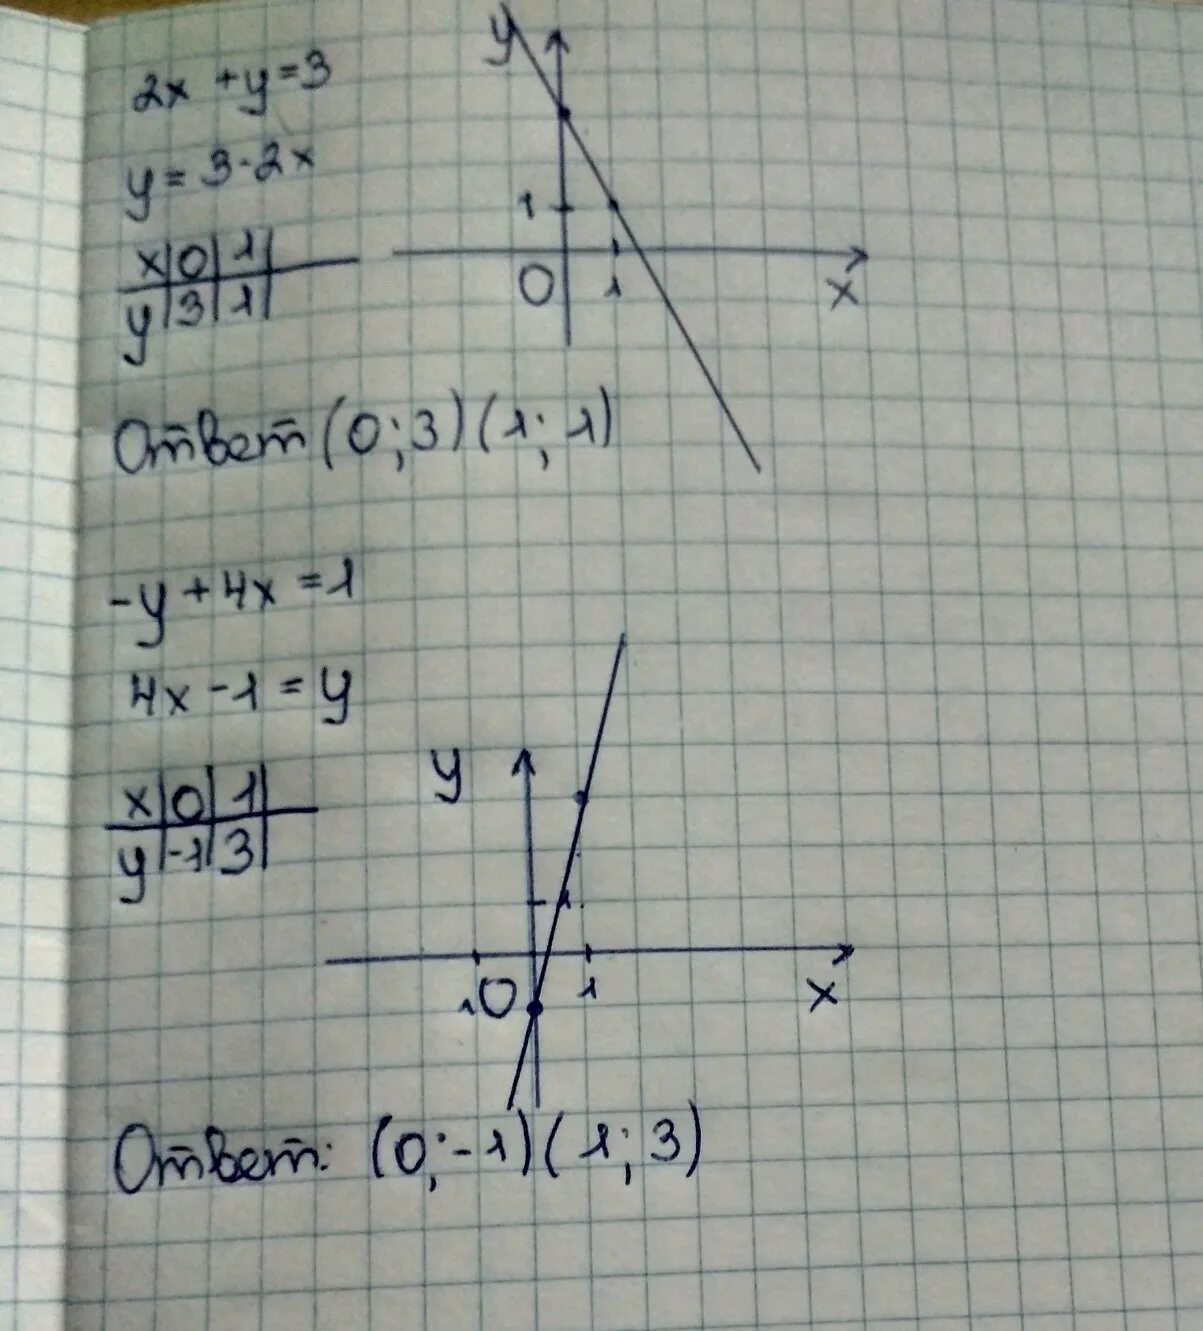 2x + y = 3
y = 3 - 2x
x | 0 | 1
y | 3 | 1
y
1
0 1 x
Ответ (0; 3) (1; 1)
-y + 4x = 1
4x - 1 = y
x | 0 | 1
y | -1 | 3
y
1
1 0 1 x
Ответ: (0; -1) (1; 3)